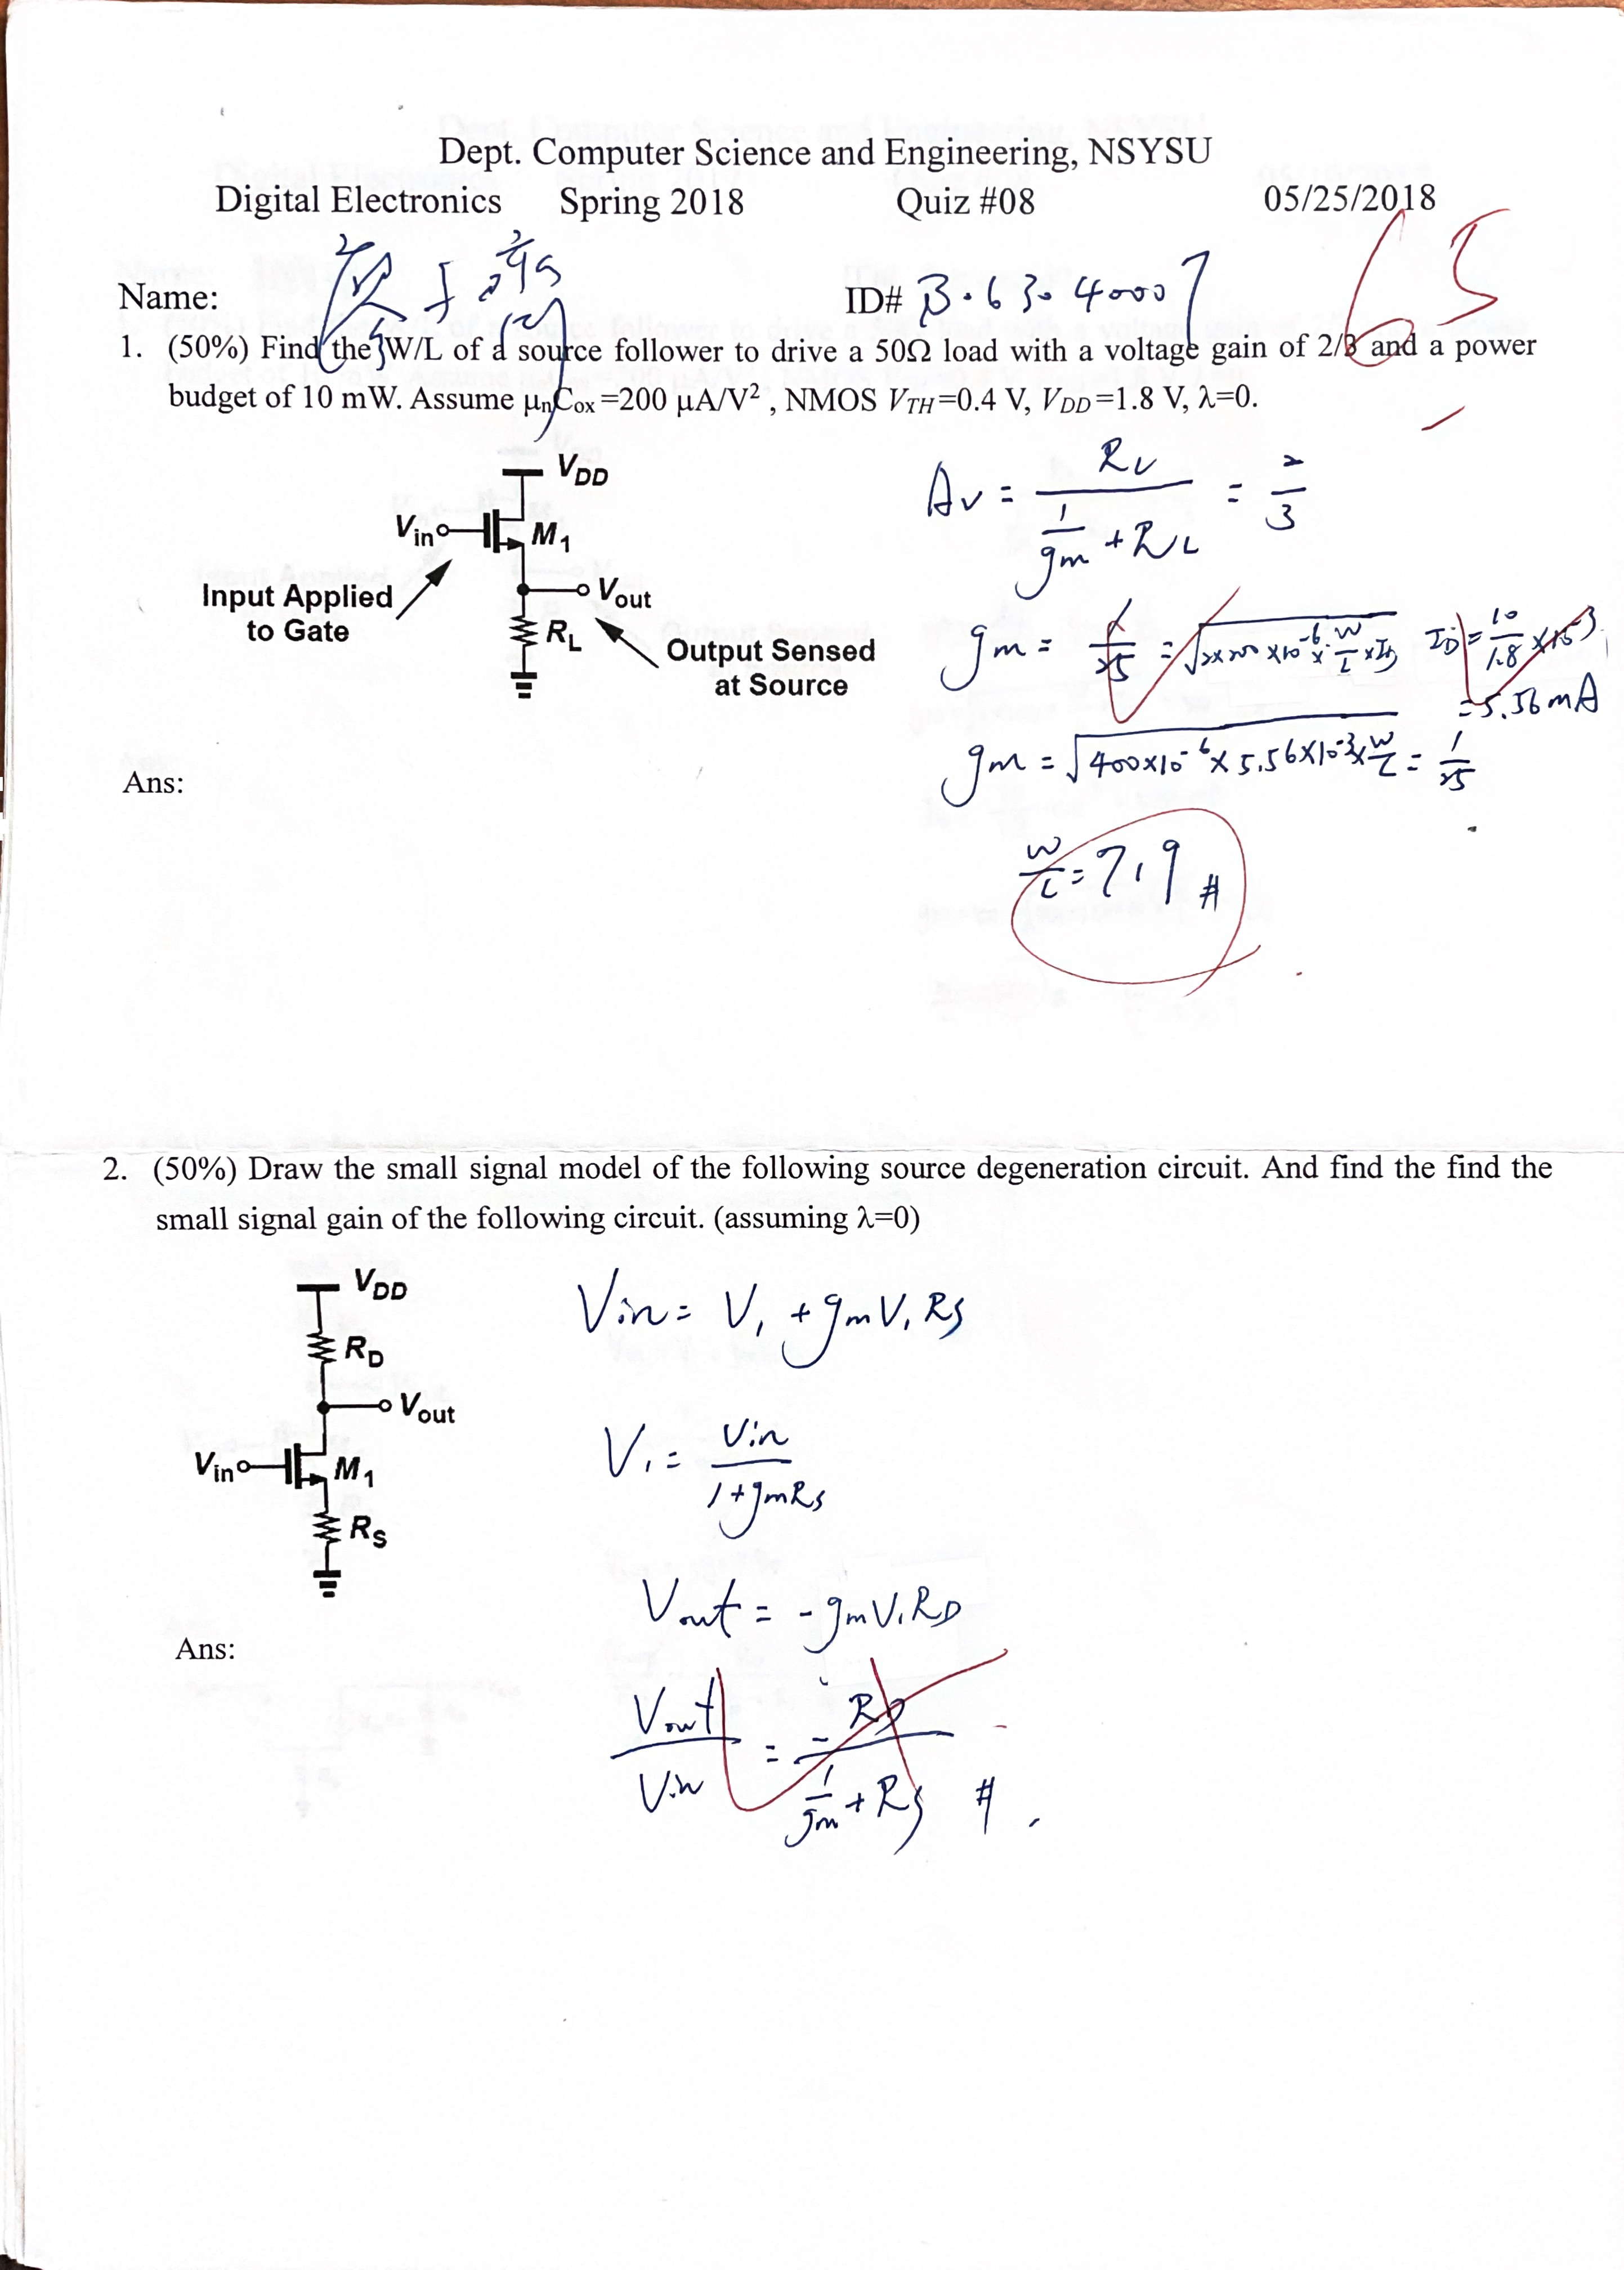 Dept. Computer Science and Engineering, NSYSU
Digital Electronics Spring 2018 Quiz #08 05/25/2018
65
Name: ID# B063040007
1. (50%) Find the W/L of a source follower to drive a 50Ω load with a voltage gain of 2/3 and a power
budget of 10 mW. Assume μnCox=200 μA/V² , NMOS VTH=0.4 V, VDD=1.8 V, λ=0.
VDD
Vin M1
Vout
Input Applied
to Gate
RL
Output Sensed
at Source
Av = RL / (1/gm + RL) = 2/3
gm = 1/25 = √(2×200×10⁻⁶×W/L×ID) ID = 10/1.8 ×10⁻³
=5.56mA
gm = √(400×10⁻⁶×5.56×10⁻³×W/L) = 1/25
Ans:
W/L = 719 #
2. (50%) Draw the small signal model of the following source degeneration circuit. And find the find the
small signal gain of the following circuit. (assuming λ=0)
VDD
RD
Vout
Vin M1
RS
Vin = V1 + gmV1RS
V1 = Vin / (1+gmRS)
Vout = -gmV1RD
Ans:
Vout/Vin = -RD / (1/gm + RS) #